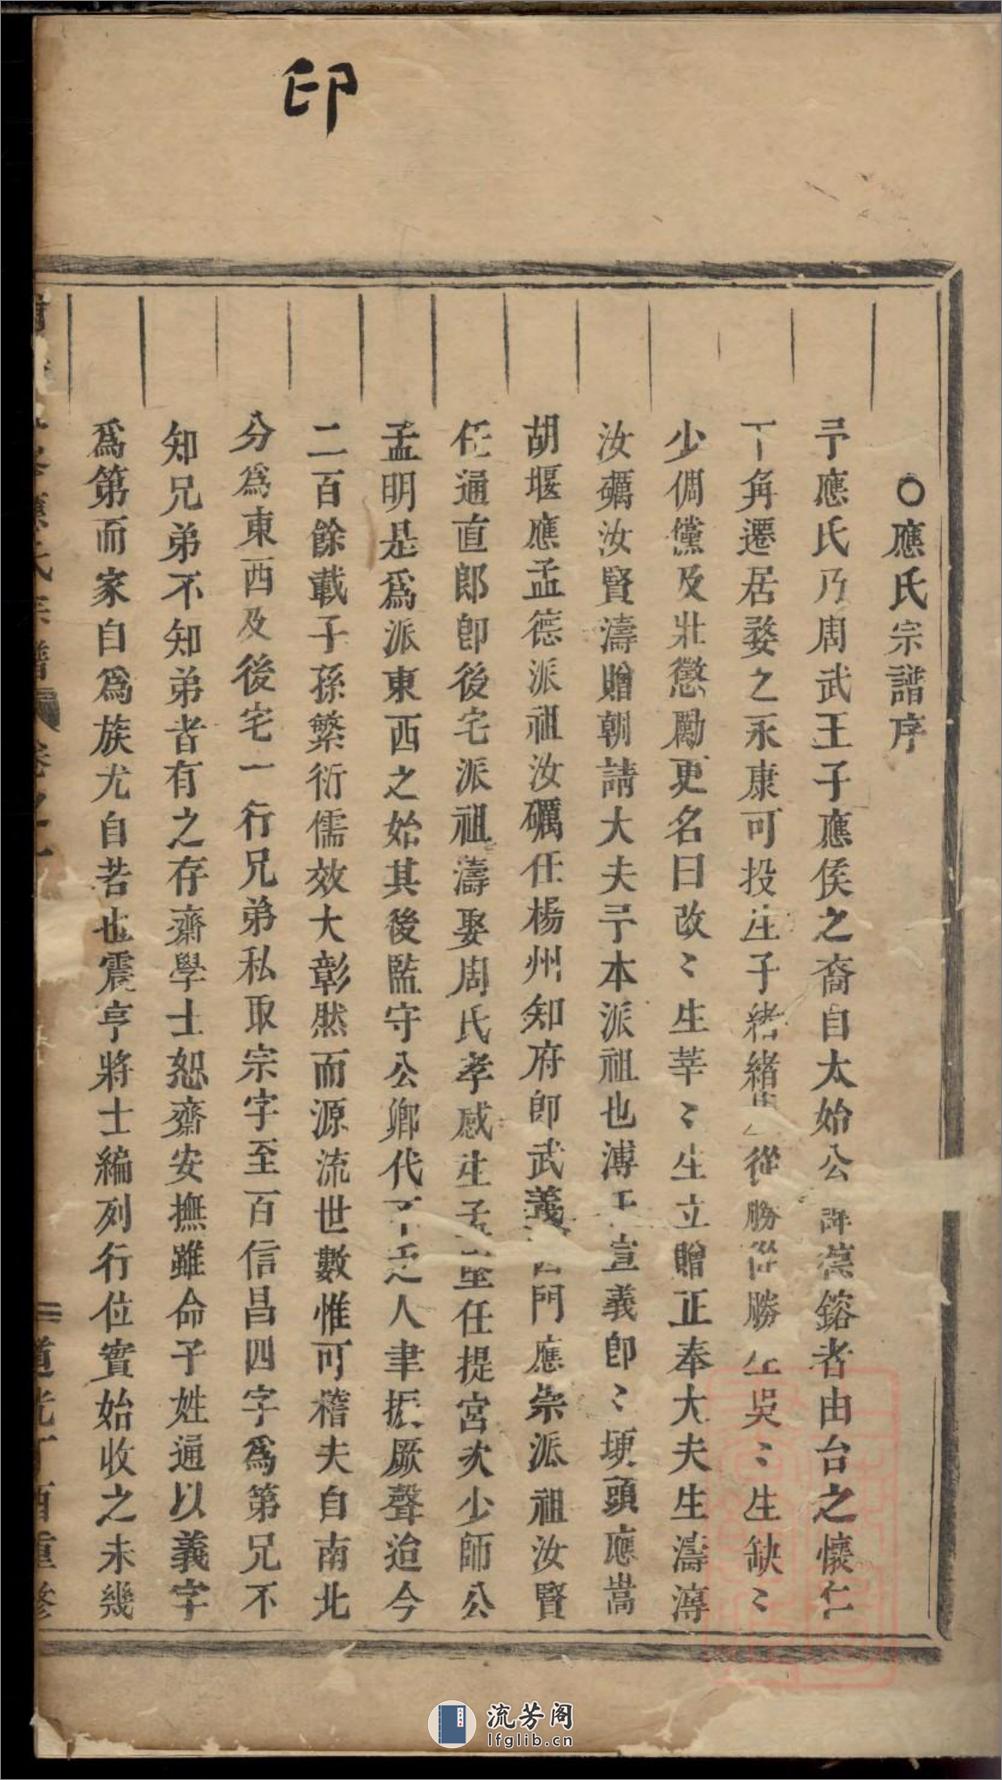 印
○應氏宗譜序
予應氏乃周武王子應侯之裔自太始公諱鎔者由台之懷仁
丁角遷居婺之永康可投庄子緒緒生從勝從勝生吳〻生缺〻
少倜儻及壯懲勵更名曰改〻生莘〻生立贈正奉大夫生濤溥
汝礪汝賢濤贈朝請大夫予本派祖也溥任宣義郎〻埂頭應嵩
胡堰應孟德派祖汝礪任楊州知府即武義西門應崇派祖汝賢
任通直郎即後宅派祖濤娶周氏孝感生孟堅任提宮次少師公
孟明是爲派東西之始其後監守公卿代不乏人聿振厥聲迨今
二百餘載子孫繁衍儒效大彰然而源流世數惟可稽夫自南北
分爲東西及後宅一行兄弟私取宗字至百信昌四字爲第兄不
知兄弟不知弟者有之存齋學士恕齋安撫雖命子姓通以義字
爲第而家自爲族尤自若也震亨將士編列行位實始收之未幾
應氏宗譜 卷之一 道光丁酉重修
流芳阁
lfglib.cn